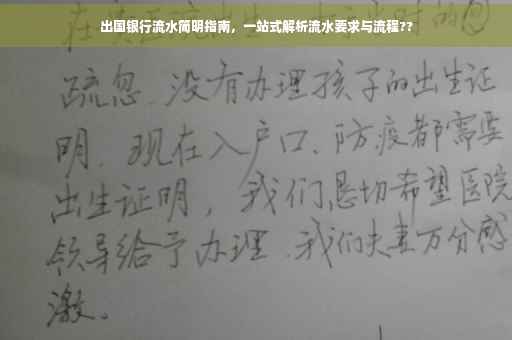 出国银行流水简明指南，一站式解析流水要求与流程??
疏忽、没有办理孩子的出生证
明、现在入户口、防疫都需要
出生证明，我们恳切希望医院
领导给予办理、我们夫妻万分感
激。